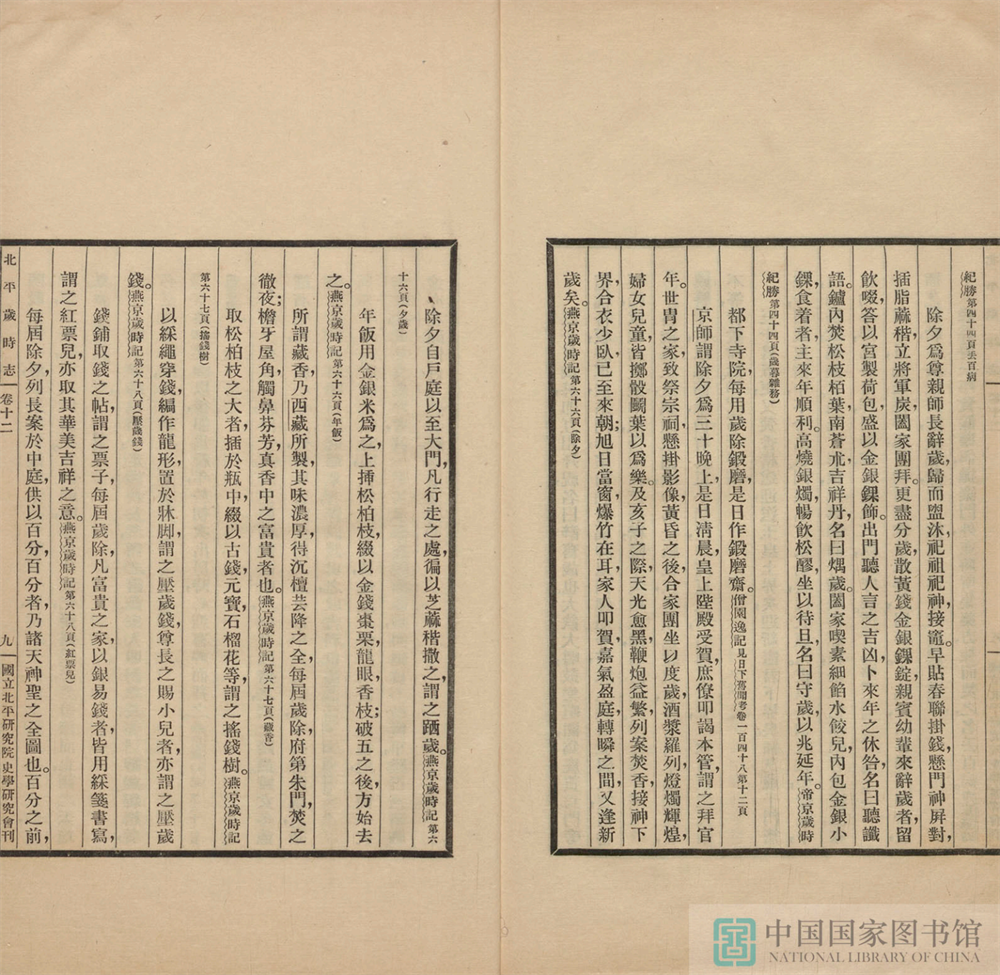 紀勝第四十四頁丟百病
除夕爲尊親師長辭歲歸而盥沐祀祖祀神接竈早貼春聯掛錢懸門神屏對
插脂蔴楷立將軍炭闔家團拜更盡分歲散黃錢金銀錁錠親賓幼輩來辭歲者留
飲啜答以宮製荷包盛以金銀錁飾出門聽人言之吉凶卜來年之休咎名曰聽讖
語鑪內焚松枝栢葉南蒼朮吉祥丹名曰煱歲闔家喫素細餡水餃兒內包金銀小
錁食着者主來年順利高燒銀燭暢飲松醪坐以待旦名曰守歲以兆延年帝京歲時
紀勝第四十四頁(歲暮雜務)
都下寺院每用歲除鍛磨是日作鍛磨齋僧園逸記見日下舊聞考卷一百四十八第十二頁
京師謂除夕爲三十晚上是日淸晨皇上陞殿受賀庶僚叩謁本管謂之拜官
年世冑之家致祭宗祠懸掛影像黃昏之後合家團坐以度歲酒漿羅列燈燭輝煌
婦女兒童皆擲骰鬬葉以爲樂及亥子之際天光愈黑鞭炮益繁列案焚香接神下
界合衣少臥已至來朝旭日當窗爆竹在耳家人叩賀嘉氣盈庭轉瞬之間又逢新
歲矣燕京歲時記第六十六頁(除夕)
除夕自戶庭以至大門凡行走之處徧以芝蔴楷撒之謂之跴歲燕京歲時記第六
十六頁(夕歲)
年飯用金銀米爲之上揷松柏枝綴以金錢棗栗龍眼香枝破五之後方始去
之燕京歲時記第六十六頁(年飯)
所謂藏香乃西藏所製其味濃厚得沉檀芸降之全每屆歲除府第朱門焚之
徹夜檐牙屋角觸鼻芬芳真香中之富貴者也燕京歲時記第六十七頁(藏香)
取松柏枝之大者插於瓶中綴以古錢元寶石榴花等謂之搖錢樹燕京歲時記
第六十七頁(搖錢樹)
以綵繩穿錢編作龍形置於牀脚謂之壓歲錢尊長之賜小兒者亦謂之壓歲
錢燕京歲時記第六十八頁(壓歲錢)
錢鋪取錢之帖謂之票子每屆歲除凡富貴之家以銀易錢者皆用綵箋書寫
謂之紅票兒亦取其華美吉祥之意燕京歲時記第六十八頁(紅票兒)
每屆除夕列長案於中庭供以百分百分者乃諸天神聖之全圖也百分之前
北平歲時志 卷十二 九 國立北平研究院史學研究會刊
中国国家图书馆
NATIONAL LIBRARY OF CHINA